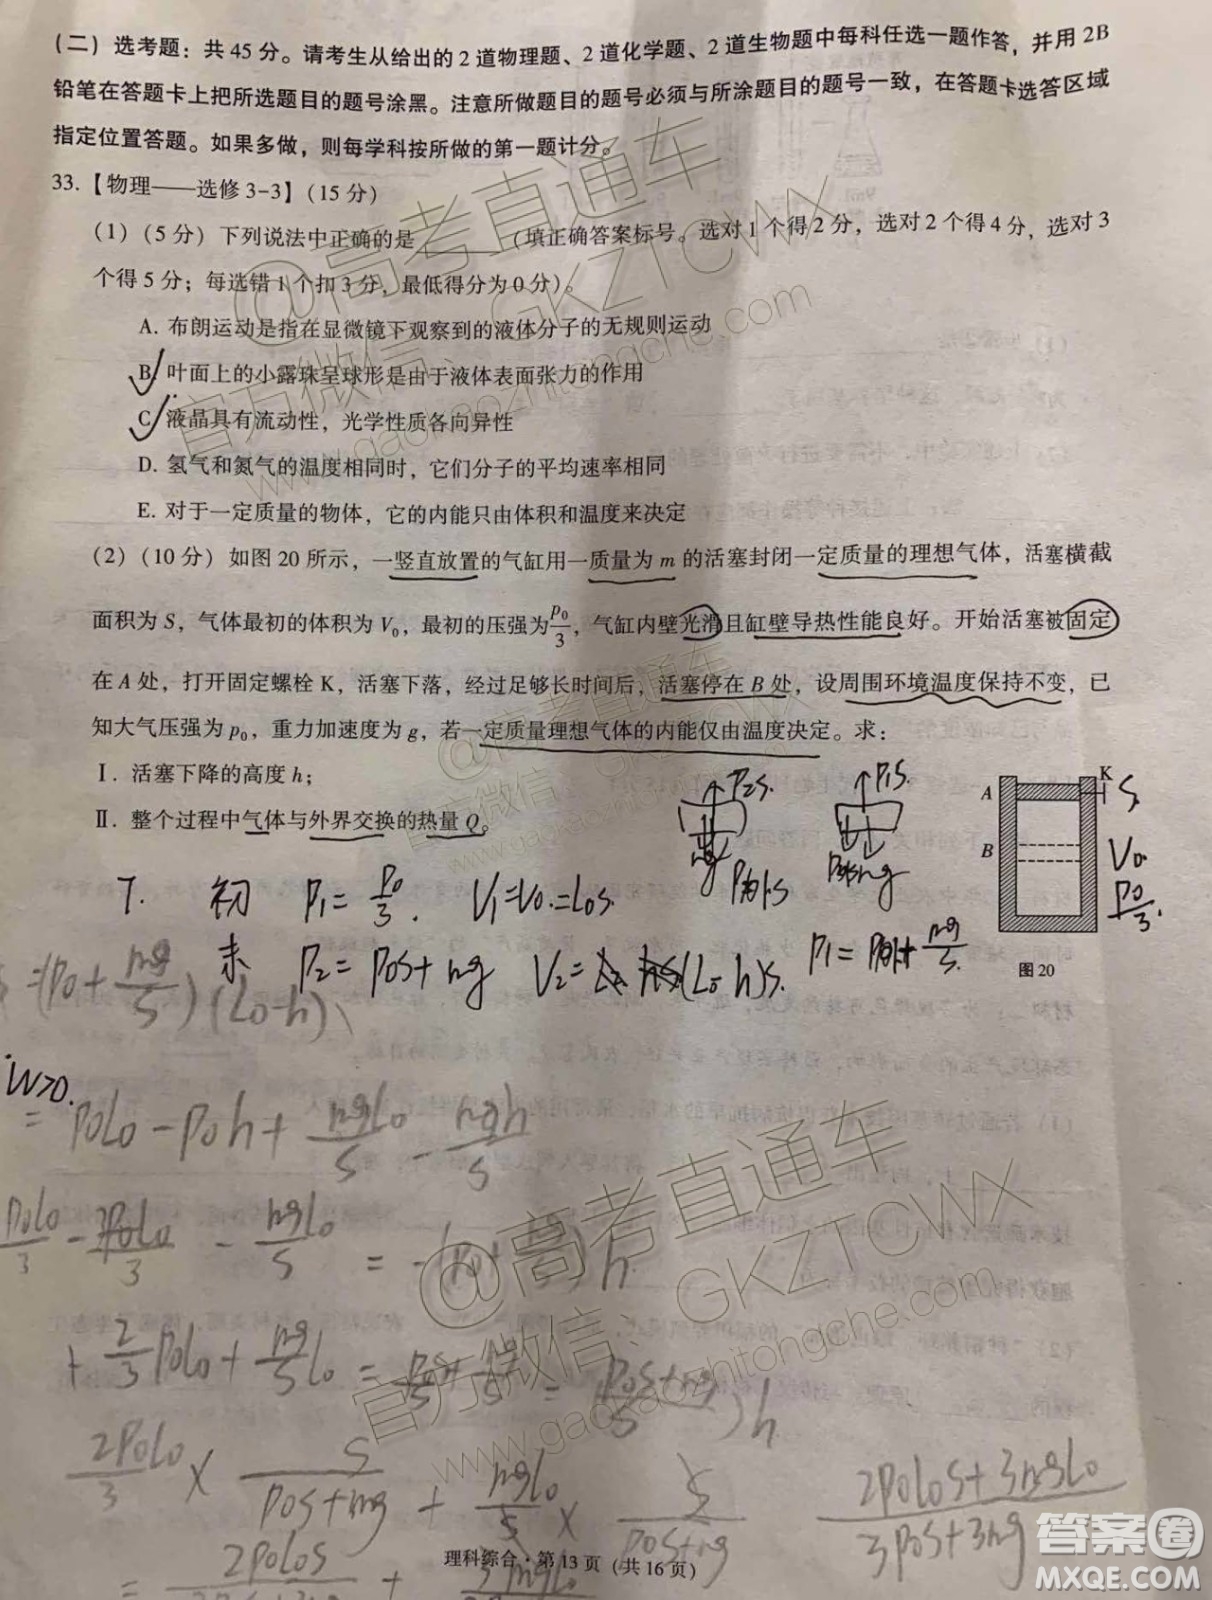 (二) 选考题：共 45 分。请考生从给出的 2 道物理题、2 道化学题、2 道生物题中每科任选一题作答，并用 2B
铅笔在答题卡上把所选题目的题号涂黑。注意所做题目的题号必须与所涂题目的题号一致，在答题卡选答区域
指定位置答题。如果多做，则每学科按所做的第一题计分。
33.【物理——选修 3-3】(15 分)
(1) (5 分) 下列说法中正确的是________ (填正确答案标号。选对 1 个得 2 分，选对 2 个得 4 分，选对 3
个得 5 分；每选错 1 个扣 3 分，最低得分为 0 分)。
A. 布朗运动是指在显微镜下观察到的液体分子的无规则运动
B. 叶面上的小露珠呈球形是由于液体表面张力的作用
C. 液晶具有流动性，光学性质各向异性
D. 氢气和氮气的温度相同时，它们分子的平均速率相同
E. 对于一定质量的物体，它的内能只由体积和温度来决定
(2) (10 分) 如图 20 所示，一竖直放置的气缸用一质量为 m 的活塞封闭一定质量的理想气体，活塞横截
面积为 S，气体最初的体积为 V₀，最初的压强为p₀/3，气缸内壁光滑且缸壁导热性能良好。开始活塞被固定
在 A 处，打开固定螺栓 K，活塞下落，经过足够长时间后，活塞停在 B 处，设周围环境温度保持不变，已
知大气压强为 p₀，重力加速度为 g，若一定质量理想气体的内能仅由温度决定。求：
Ⅰ. 活塞下降的高度 h；
Ⅱ. 整个过程中气体与外界交换的热量 Q。
A K S
B V₀
p₀/3
图 20
P₂S. P₁S.
mg mg
初 P₁=P₀/3. V₁=V₀=L₀S.
末 P₂=P₀S+mg V₂=(L₀-h)S.
=(P₀+mg/S)(L₀-h)
W>0.
=P₀L₀-P₀h+mgL₀/S-mgh/S
P₀L₀/3-3P₀L₀/3-mgL₀/S=-(P₀+mg/S)h
+2/3P₀L₀+mg/SL₀
2P₀L₀/3×S/P₀S+mg+mgL₀/S×S/P₀S+mg
2P₀L₀S+3mgL₀/3P₀S+3mg
理科综合·第 13 页（共 16 页）
@高考直通车
官方微信：GKZTCWX
www.gaokaozhitongche.com
@高考直通车
官方微信：GKZTCWX
www.gaokaozhitongche.com
答案圈
MXQE.COM